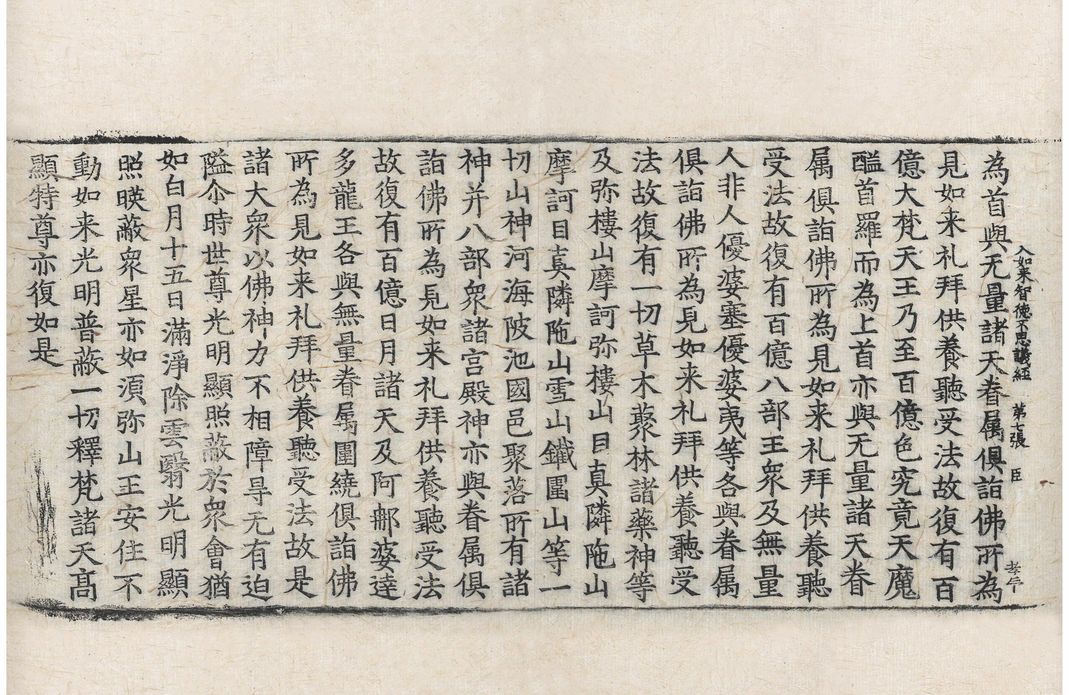 入如来智德不思議經 第七張 臣
為首與无量諸天眷属俱詣佛所為
見如来礼拜供養聽受法故復有百
億大梵天王乃至百億色究竟天魔
醯首羅而為上首亦與无量諸天眷
属俱詣佛所為見如来礼拜供養聽
受法故復有百億八部王衆及無量
人非人優婆塞優婆夷等各與眷属
俱詣佛所為見如来礼拜供養聽受
法故復有一切草木藂林諸藥神等
及弥樓山摩訶弥樓山目真隣陁山
摩訶目真隣陁山雪山鐵圍山等一
切山神河海陂池國邑聚落所有諸
神并八部衆諸宮殿神亦與眷属俱
詣佛所為見如来礼拜供養聽受法
故復有百億日月諸天及阿郍婆達
多龍王各與無量眷属圍繞俱詣佛
所為見如来礼拜供養聽受法故是
諸大衆以佛神力不相障㝵无有迫
隘尒時世尊光明顯照蔽於衆會猶
如白月十五日滿淨除雲翳光明顯
照暎蔽衆星亦如湏弥山王安住不
動如来光明普蔽一切釋梵諸天髙
顯特尊亦復如是